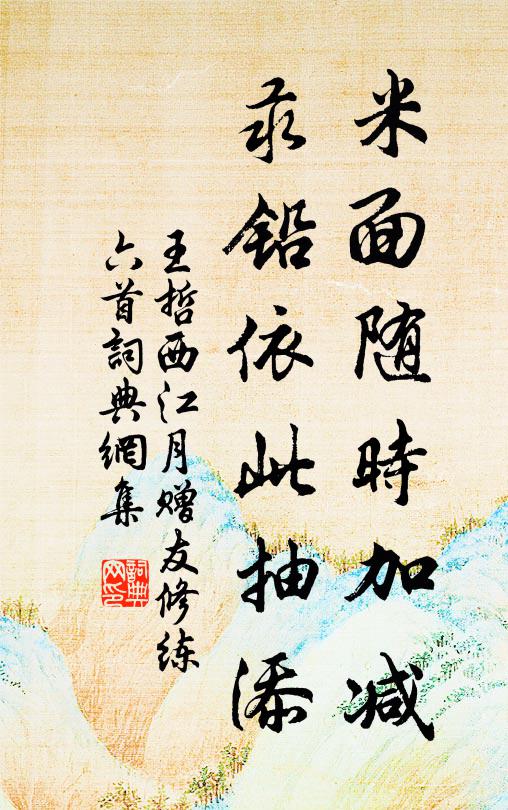 米面随時加减
汞鉛依此抽添
王哲西江月赠友修练
六首詞典網集
詞典
网印